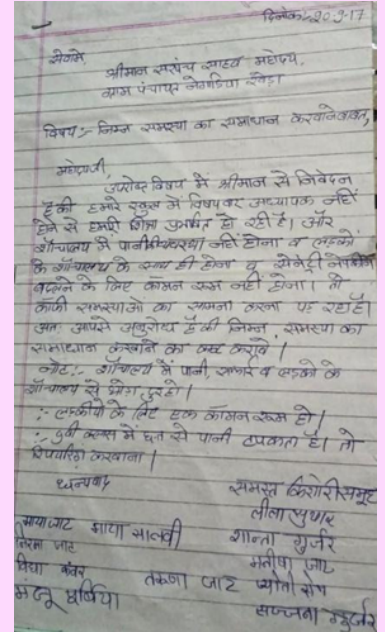 दिनांक:- 20-9-17
सेवामे,
श्रीमान सरपंच साहब महोदय,
ग्राम पंचायत खेड़ा
विषय:- निम्न समस्या का समाधान करवाने बाबत,
महोदयजी,
उपरोक्त विषय में श्रीमान से निवेदन
है की हमारे स्कुल में विषयवार अध्यापक नहीं
होने से हमारी शिक्षा प्रभावित हो रही है। और
शौचालय में पानी की व्यवस्था नहीं होना व लड़कों
के शौचालय के साथ ही होना व सेनेट्री नेपकीन
बदलने के लिए कामन रूम नहीं होना। तो
काफी समस्याओं का सामना करना पड़ रहा है।
अतः आपसे अनुरोध है की निम्न समस्या का
समाधान करवाने का कष्ट करावे।
नोट:- शौचालय में पानी, सफाई व लड़कों के
शौचालय से थोड़ा दुर हो।
:- लड़कीयों के लिए एक कॉमन रूम हो।
:- क्लास में छत से पानी टपकता है। तो
करवाना।
धन्यवाद
समस्त किशोरी समूह
लीला सुथार
माया जाट माया सालवी शान्ता गुर्जर
जाट मनीषा जाट
विद्या कंवर जाट ज्योती सेन
मंजू गुर्जर